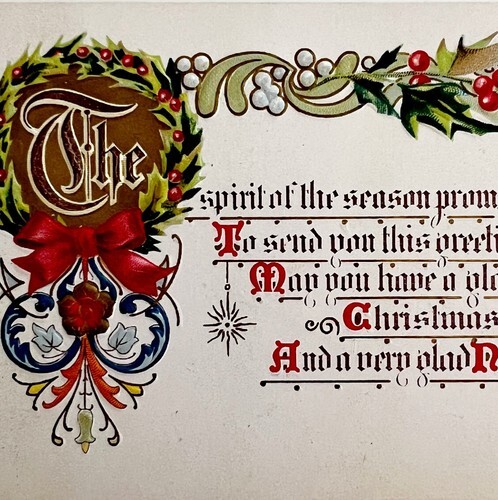 The
spirit of the season prom
To send you this greeti
May you have a gla
Christmas
And a very glad N